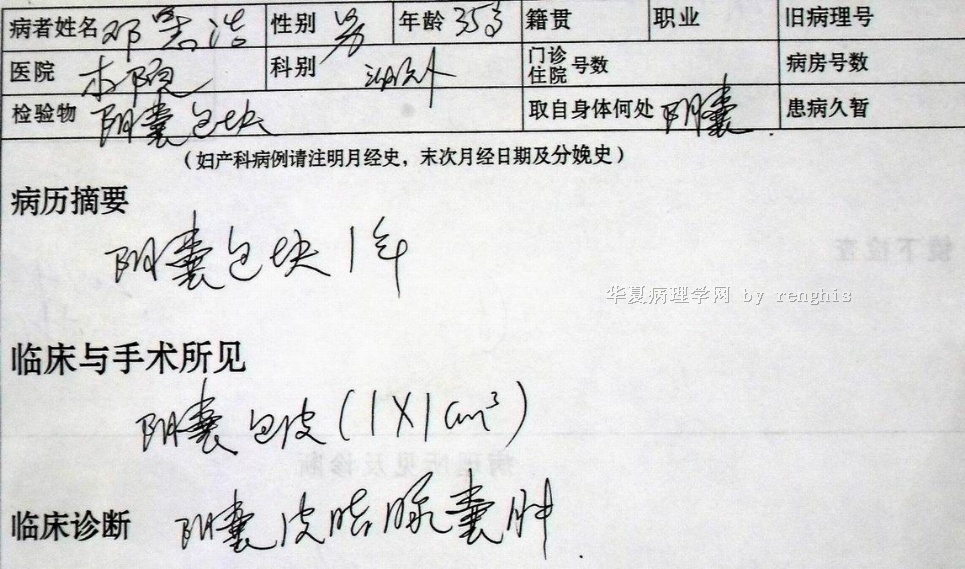 病者姓名 邓 浩 性别 男 年龄 35岁 籍贯 职业 旧病理号
医院 本院 科别 泌尿外 门诊住院号数 病房号数
检验物 阴囊包块 取自身体何处 阴囊. 患病久暂
(妇产科病例请注明月经史,末次月经日期及分娩史)
病历摘要
阴囊包块1年
镜下检查
华夏病理学网 by renghis
临床与手术所见
阴囊包皮(1X1cm³)
病理所见及诊断
临床诊断 阴囊皮脂腺囊肿.